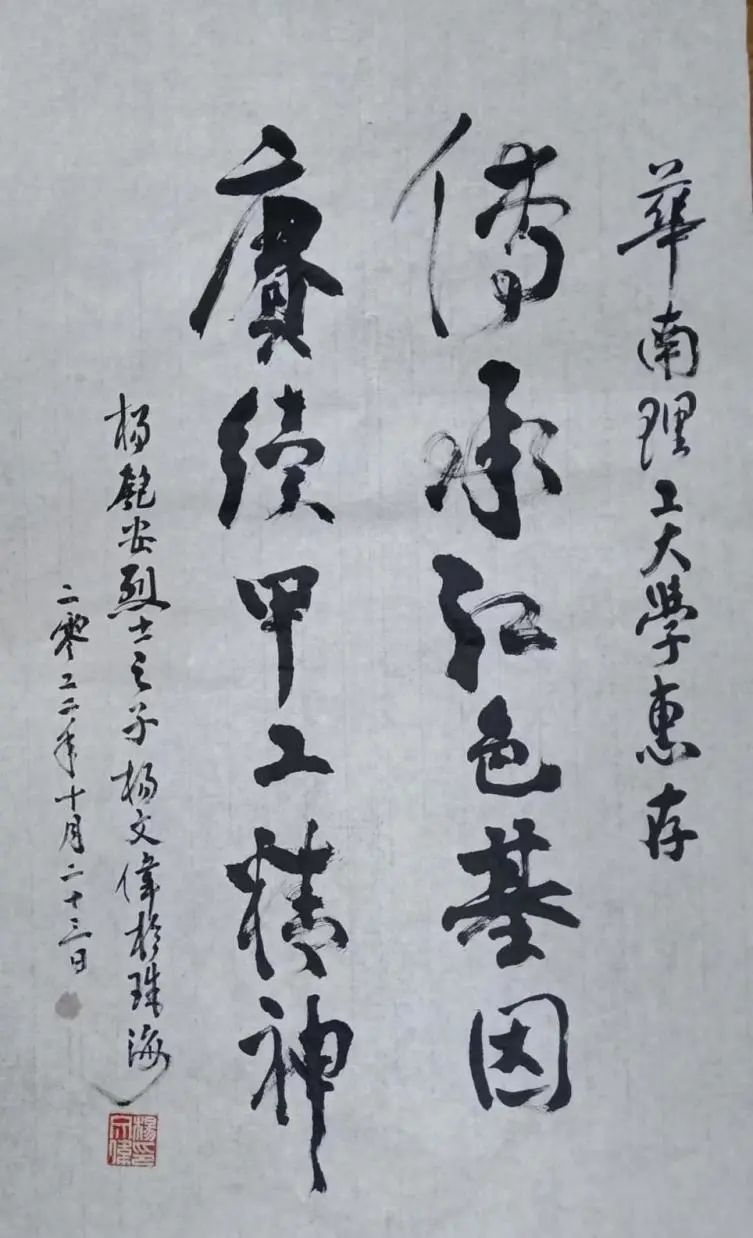 華南理工大學惠存
傳承红色基因
賡續甲工精神
杨匏安烈士之子杨文偉於珠海
二零二二年十月二十三日